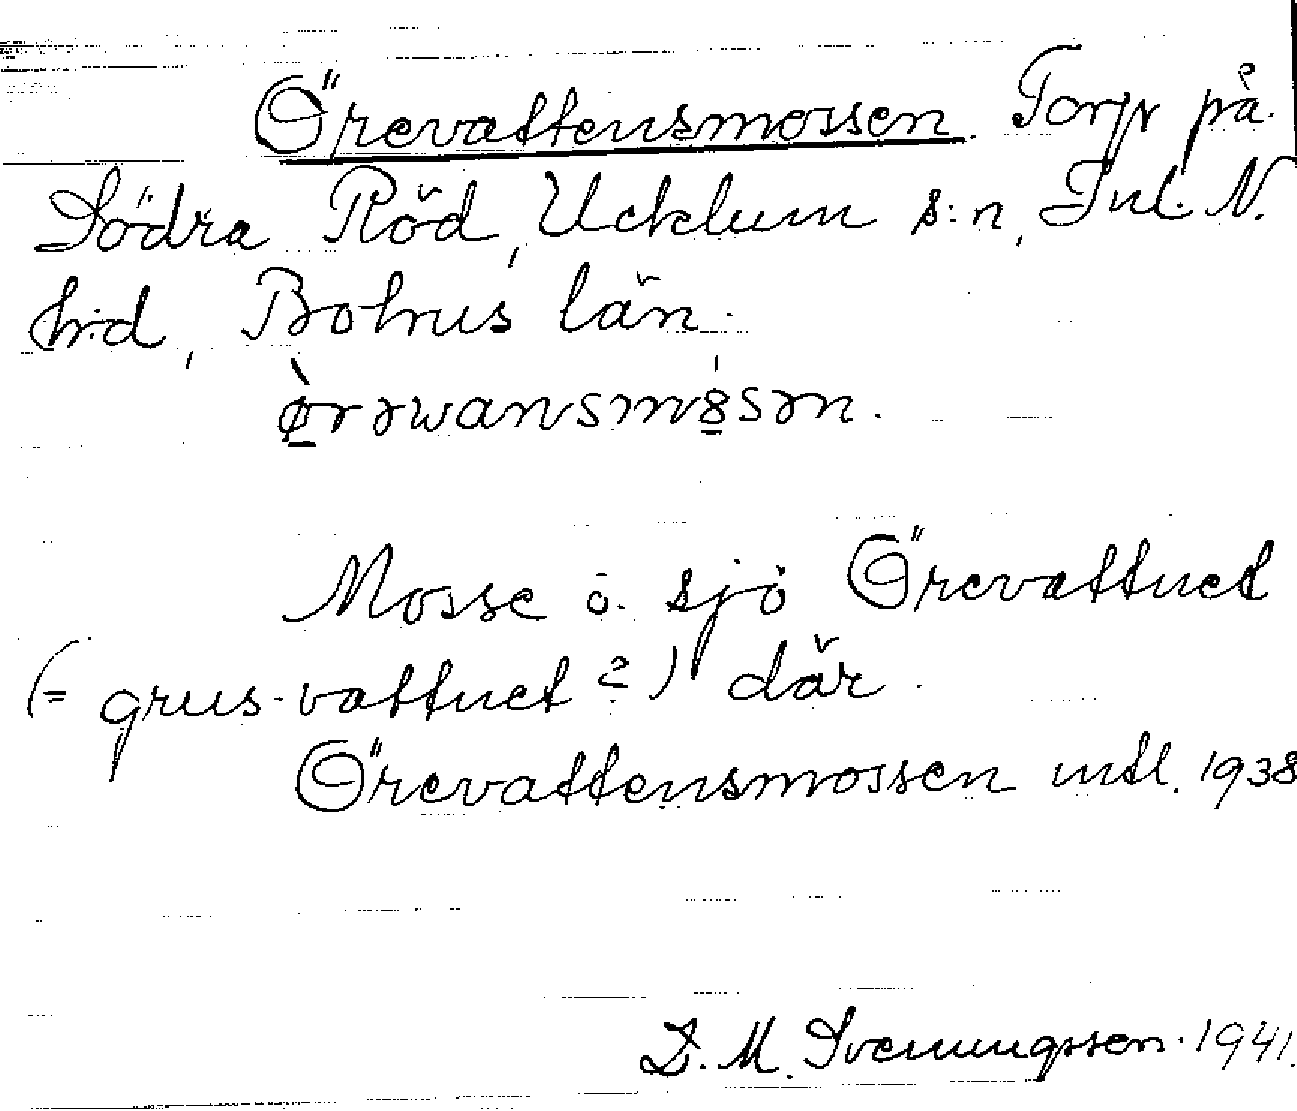 Örevattensmossen. Torp på
Södra Röd, Ucklum s:n, Inl. N.
h:d, Bohus län.
ø̀rəwansmȣsən.
Mosse ö. sjö Örevattnet
(= grus-vattnet?) där.
Örevattensmossen mtl. 1938
D. M. Svenungssen. 1941.